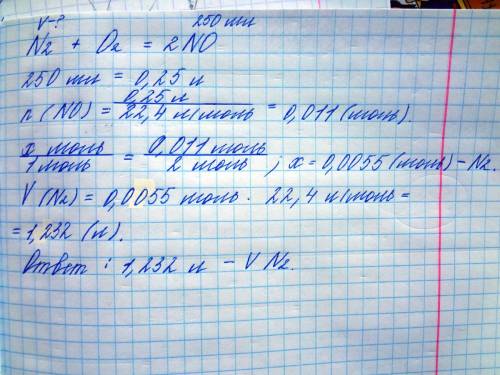 V-? 250 мл
N₂ + O₂ = 2NO
250 мл = 0,25 л
n(NO) = 0,25 л / 22,4 л/моль = 0,011 (моль).
x моль / 1 моль = 0,011 моль / 2 моль ; x = 0,0055 (моль) - N₂.
V(N₂) = 0,0055 моль · 22,4 л/моль =
= 1,232 (л).
Ответ : 1,232 л - V N₂.